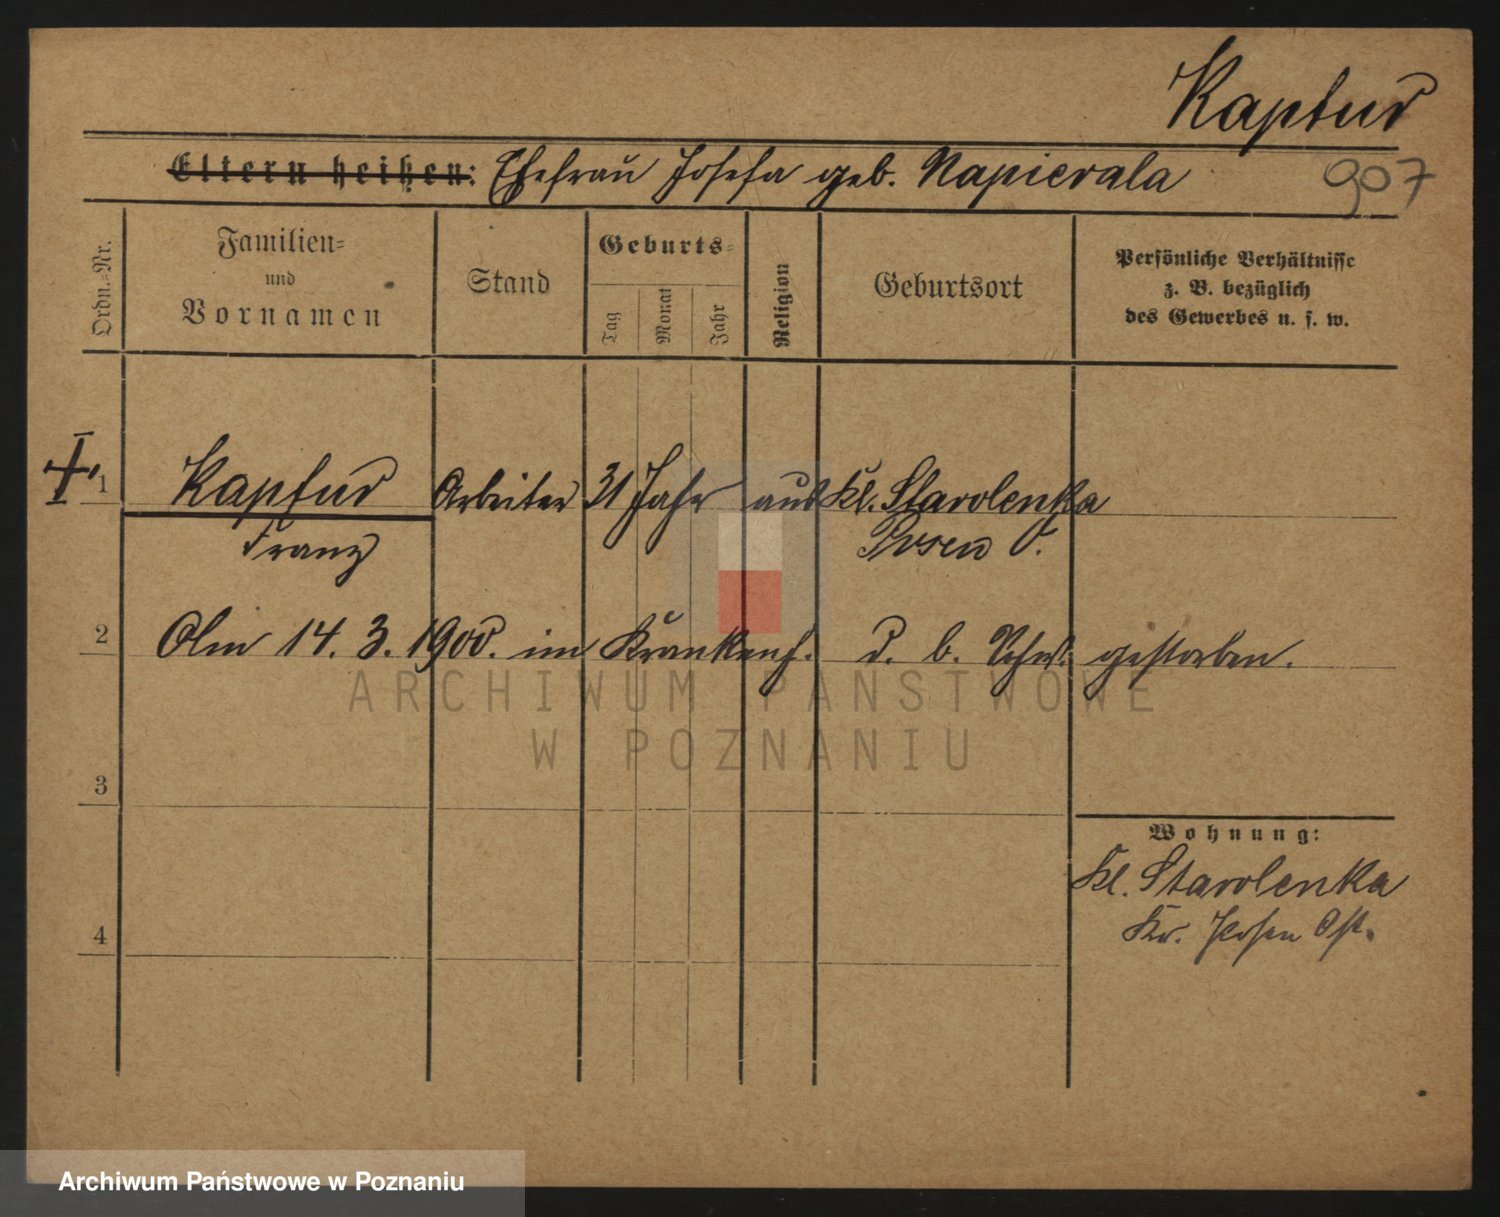 Kaptur
Eltern heißen: Ehefrau Josefa geb. Napierala
907
Ordn.-Nr.
Familien-
und
Vornamen
Stand
Geburts-
Tag
Monat
Jahr
Religion
Geburtsort
Persönliche Verhältnisse
z. B. bezüglich
des Gewerbes u. s. w.
1 Kaptur Arbeiter 31 Jahr aus Kl. Starolenka
Franz Posen O.
2 Am 14. 3. 1900. im Krankenh. d. b. Schw. gestorben.
ARCHIWUM PAŃSTWOWE
W POZNANIU
3
Wohnung:
Kl. Starolenka
Kr. Posen Ost.
4
Archiwum Państwowe w Poznaniu